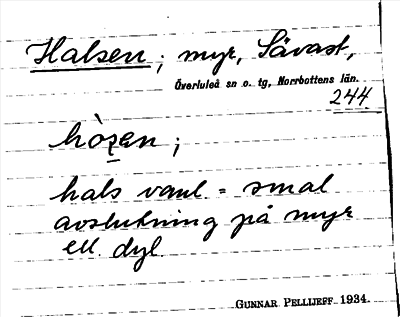 Halsen; myr, Sävast,
Överluleå sn o. tg, Norrbottens län.
244
hals vanl. = smal
avslutning på myr
ell. dyl.
GUNNAR PELLIJEFF 1934